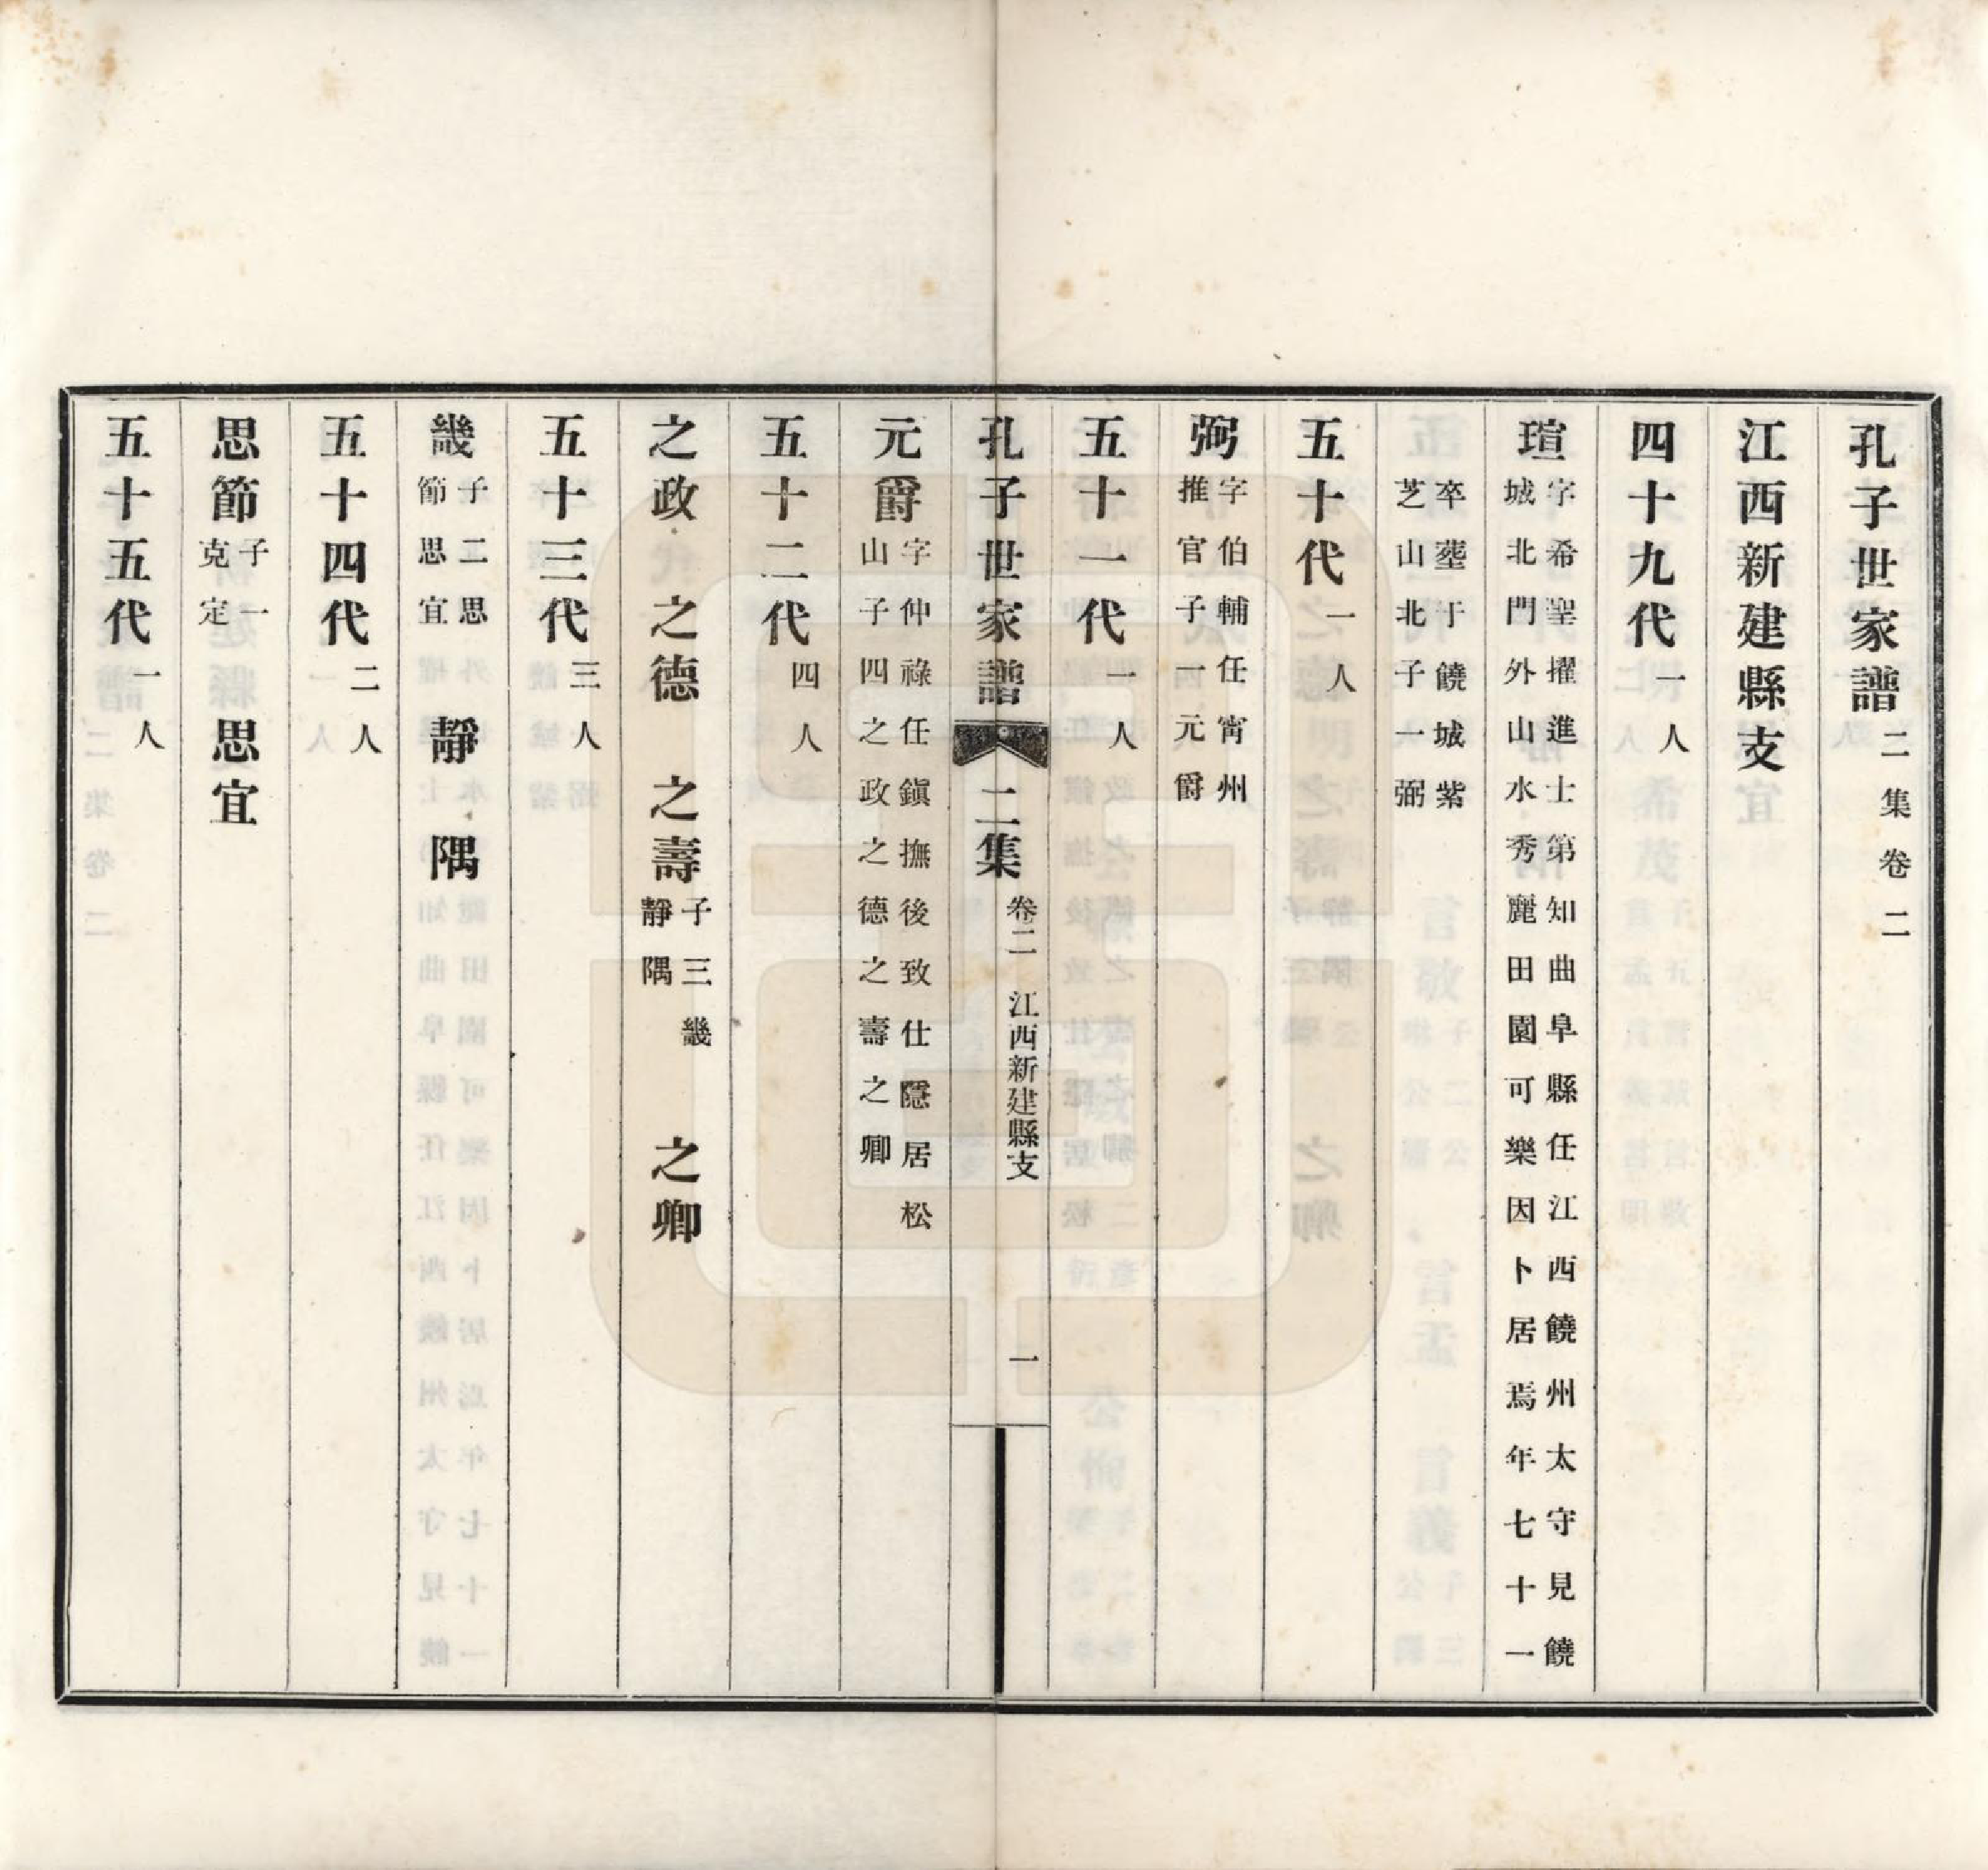 孔子世家譜 二集卷二
江西新建縣支
四十九代 一人
瑄 字希聖擢進士第知曲阜縣任江西饒州太守見饒
城北門外山水秀麗田園可樂因卜居焉年七十一
卒塟于饒城紫
芝山北子一弼
五十代 一人
弼 字伯輔任甯州
推官子一元爵
五十一代 一人
孔子世家譜 二集 卷二 江西新建縣支 一
元爵 字仲祿任鎮撫後致仕隱居松
山子四之政之德之壽之卿
五十二代 四人
之政 之德 之壽 子三畿
靜隅 之卿
五十三代 三人
畿 子二思
節思宜 靜 隅
五十四代 二人
思節 子一
克定 思宜
五十五代 一人